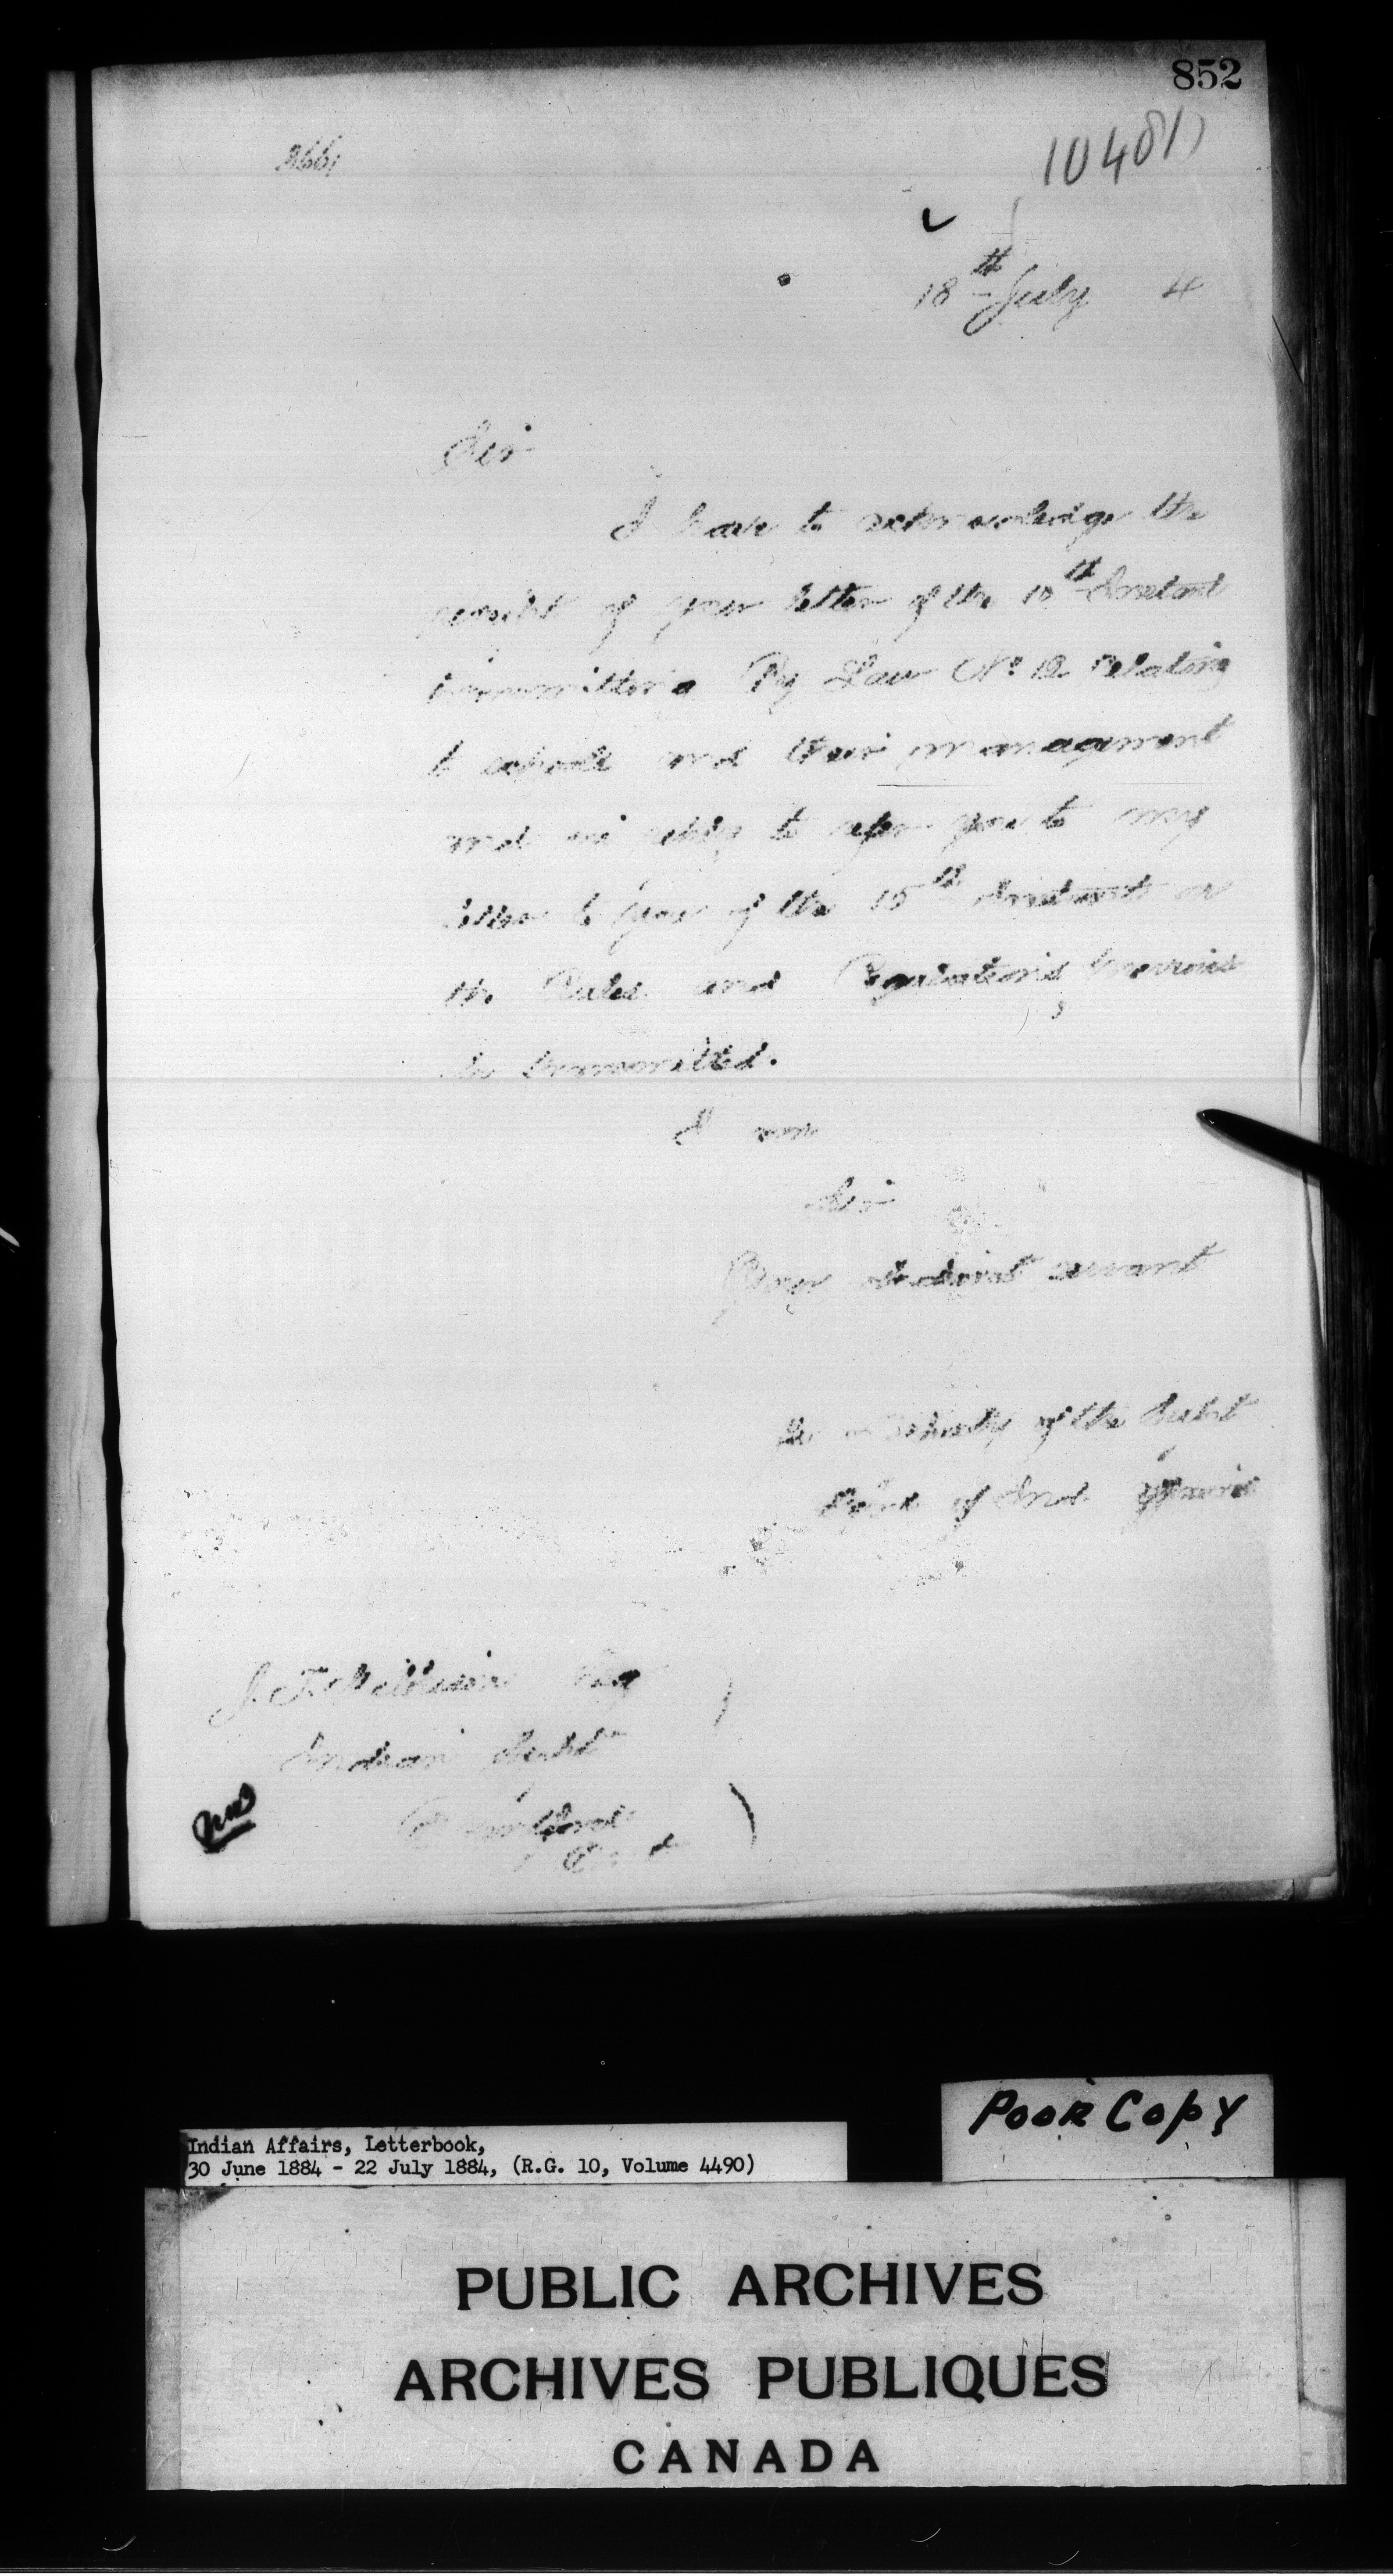 852
10481
18th July 4
Sir
I have to acknowledge the
receipt of your letter of the 10th Instant
transmitting By Law No 12 relating
to schools and their management
and in reply to refer you to my
letter to you of the 15th Instant
the Rules and Regulations
transmitted.
I am
Sir
Your obedient servant
of the Supt
of Ind. Affairs
Esq
Indian Supt
Brantford
Poor Copy
Indian Affairs, Letterbook,
30 June 1884 - 22 July 1884, (R.G. 10, Volume 4490)
PUBLIC ARCHIVES
ARCHIVES PUBLIQUES
CANADA